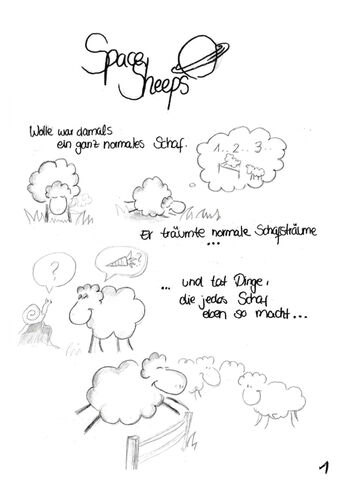 Spacey
Sheeps
Wolle war damals
ein ganz normales Schaf.
1...2...3...
Er träumte normale Schafsträume
...
?
... und tat Dinge,
die jedes Schaf
eben so macht...
1